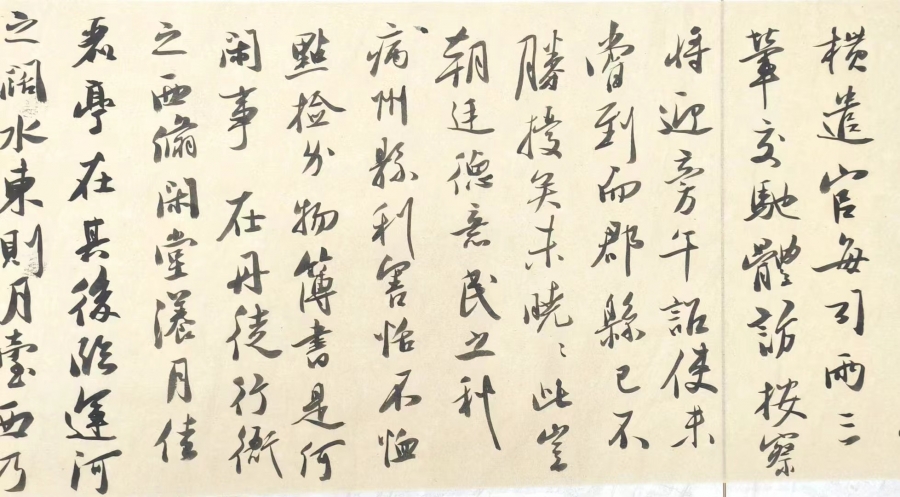 橫遣官每司兩三
輩交馳體訪按察
將迎旁午詔使未
嘗到而郡縣已不
勝擾矣未曉曉此豈
朝廷德意民之利
病州縣利害恬不恤
點檢分物簿書是何
閑事 在丹徒行衙
之西脩閑堂漾月佳
麗亭在其後臨運河
之闊水東則月臺西乃